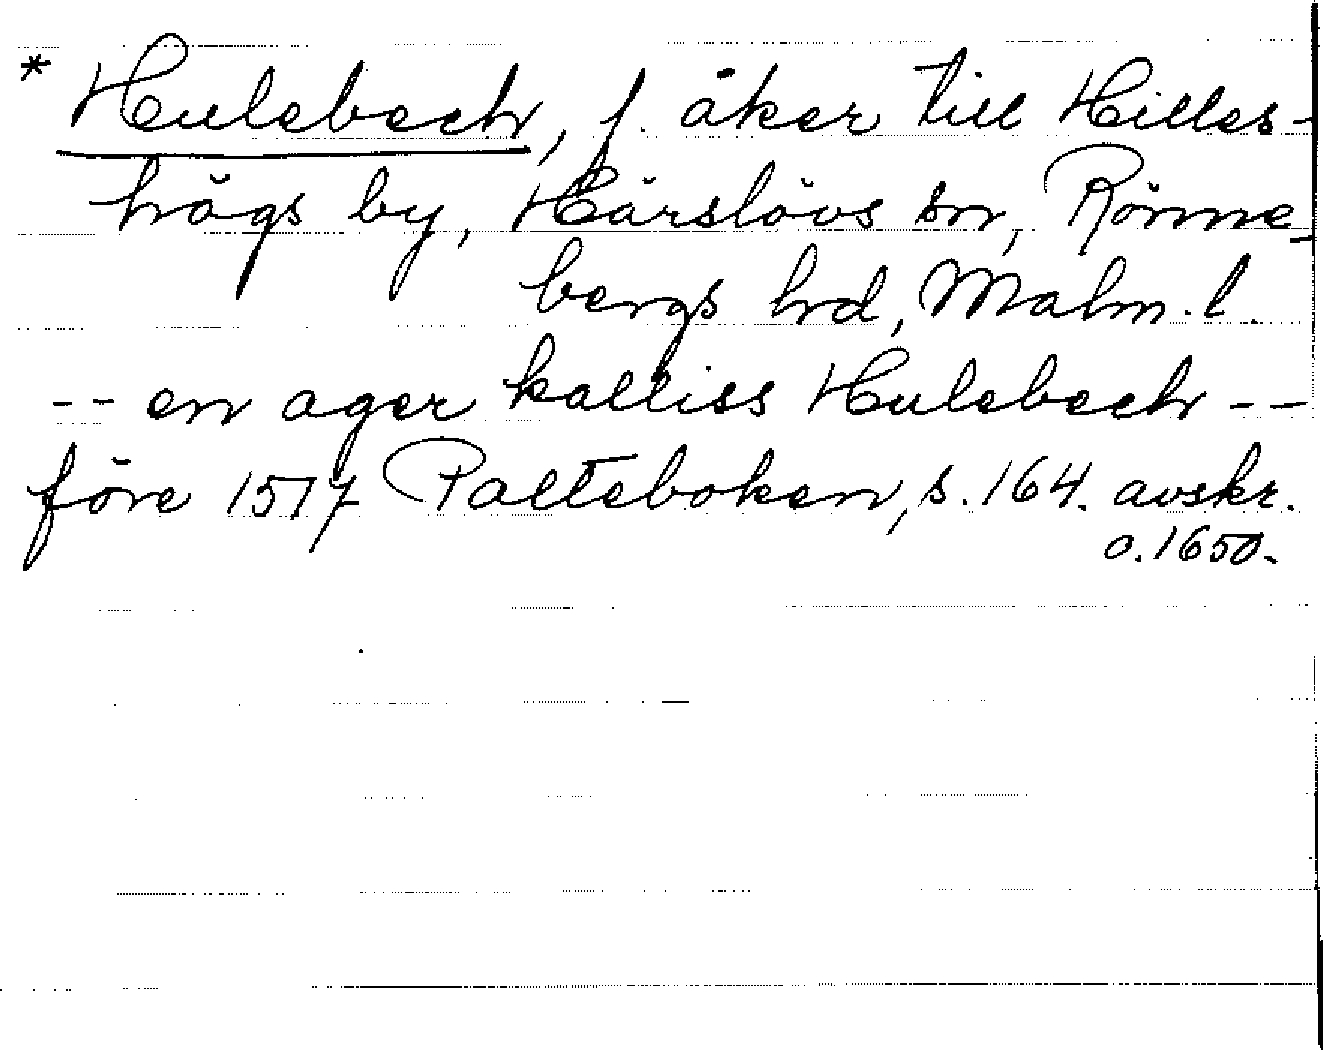 * Hulebech, f. åker till Hilles-
högs by, Härslövs sn, Rönne-
bergs hrd, Malm. l.
-- en ager kalliss Hulebech --
före 1517 Palteboken, s. 164. avskr.
o. 1650.